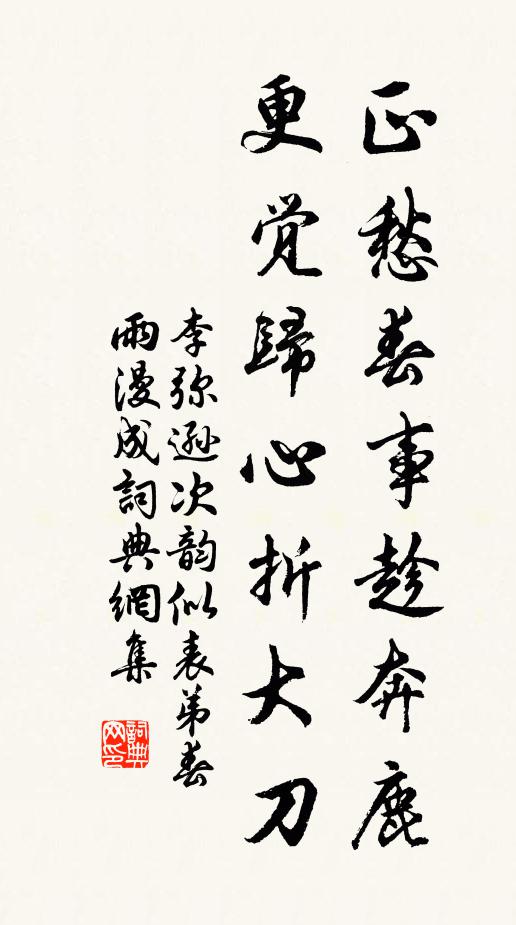 正愁春事趁奔鹿
更觉歸心折大刀
李弥逊次韵似表弟春
雨漫成詞典網集
詞典
网印